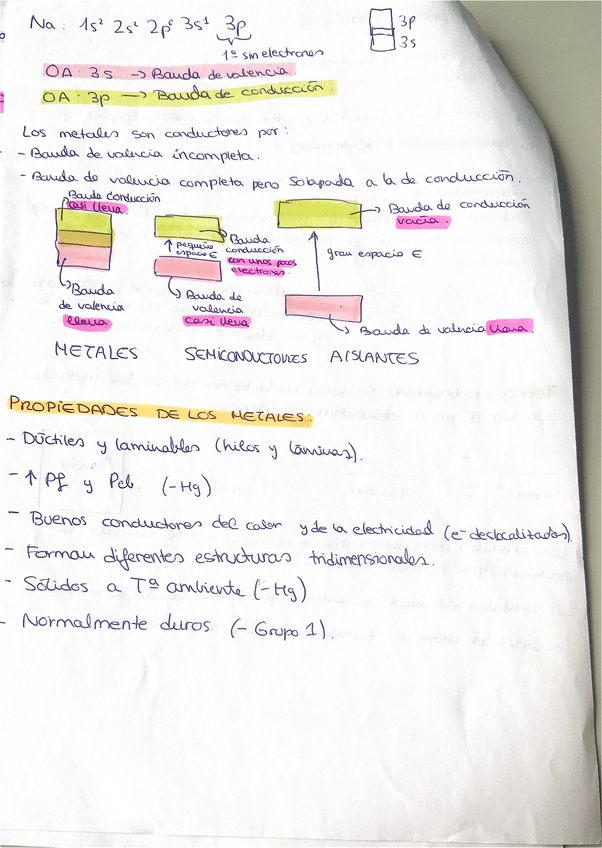 Na: 1s² 2s² 2p⁶ 3s¹ 3p
1º sin electrones
3p
3s
OA: 3s -> Banda de valencia.
OA: 3p -> Banda de conducción.
Los metales son conductores por:
- Banda de valencia incompleta.
- Banda de valencia completa pero solapada a la de conducción.
Banda conducción
casi llena
Banda
de valencia
llena
METALES
pequeño
espacio E
Banda
conducción
con unos pocos
electrones.
Banda de
valencia
casi llena
SEMICONDUCTORES
Banda de conducción
vacía.
gran espacio E
Banda de valencia llena.
AISLANTES
PROPIEDADES DE LOS METALES:
- Dúctiles y laminables (hilos y láminas).
- ↑ Pf y Peb. (-Hg)
- Buenos conductores del calor y de la electricidad (e⁻ deslocalizados).
- Forman diferentes estructuras tridimensionales.
- Sólidos a Tª ambiente (-Hg)
- Normalmente duros (- Grupo 1).